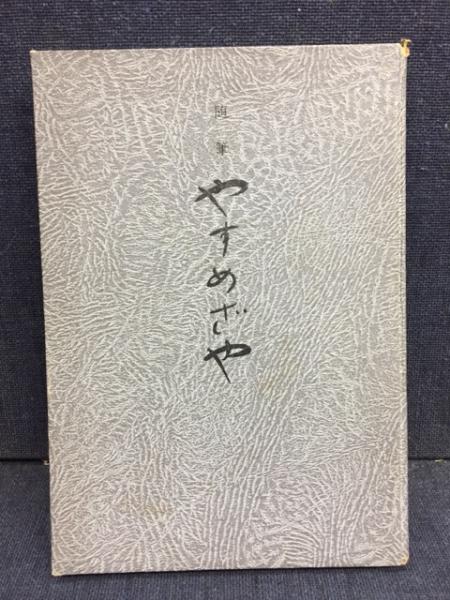 随筆
やすめざや